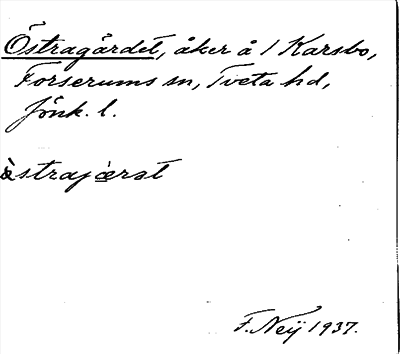 Östragärdet, åker å 1 Karsbo,
Forserums sn, Tveta hd,
Jönk. l.
östrajærat
F. Neij 1937.